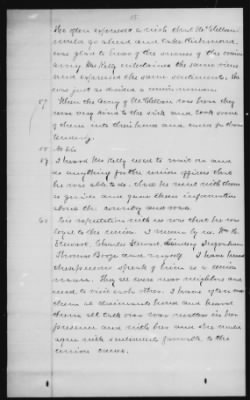 15
He often expressed a wish that McClellan
would go ahead and take Richmond
was glad to hear of the success of the union
army Mrs Kelly entertained the same views
and expressed the same sentiments. She
was just as decided a union woman.
57 When the Army of McClellan was here they
was very kind to the sick and took some
of them into their house and cared for them
tenderly.
58
59 I heard Mr Kelly went to came in and
do anything for the union officers that
he was able to do, that he went with them
as guide and gave them information
about the country and roads.
60 His reputation with us was that he was
loyal to the union. I mean by us Wm H.
Stewart, Charles Stewart,
Thomas Boze and myself. I have heard
them speak of him as a union
man. They all were near neighbors and
used to visit each other. I have often met
them at
them all talk over war matters in her
presence and with her and she would
agree with sentiments favorable to the
union cause.